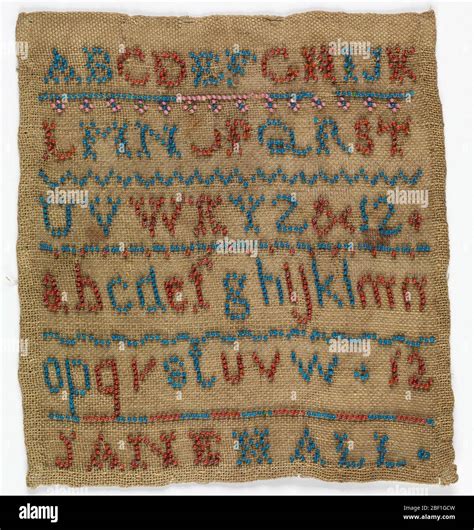 ABCDEFGHIJK
LMNOPQRST
UVWXYZ 12.
abcdefghijklmn
opqrstuvw. 12
JANE HALL.
alamy
Image ID: 2BF1GCW
www.alamy.com